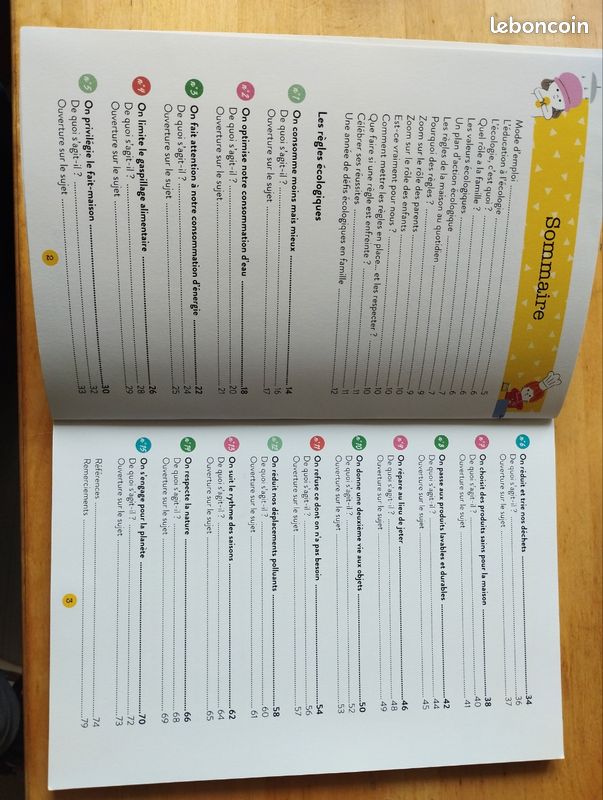 leboncoin
Sommaire
Mode d'emploi
L'éducation à l'écologie ..... 5
L'écologie, c'est quoi ? ..... 6
Quel rôle a la famille ? ..... 6
Les valeurs écologiques ..... 6
Un plan d'action écologique ..... 7
Les règles de la maison au quotidien ..... 7
Pourquoi des règles ? ..... 9
Zoom sur le rôle des parents ..... 9
Zoom sur le rôle des enfants ..... 10
Est-ce vraiment pour nous ? ..... 10
Comment mettre les règles en place... et les respecter ? ..... 10
Que faire si une règle est enfreinte ? ..... 11
Célébrer ses réussites ..... 11
Une année de défis écologiques en famille ..... 12
Les règles écologiques
n°1 On consomme moins mais mieux ..... 14
De quoi s'agit-il ? ..... 16
Ouverture sur le sujet ..... 17
n°2 On optimise notre consommation d'eau ..... 18
De quoi s'agit-il ? ..... 20
Ouverture sur le sujet ..... 21
n°3 On fait attention à notre consommation d'énergie ..... 22
De quoi s'agit-il ? ..... 24
Ouverture sur le sujet ..... 25
n°4 On limite le gaspillage alimentaire ..... 26
De quoi s'agit-il ? ..... 28
Ouverture sur le sujet ..... 29
n°5 On privilégie le fait-maison ..... 30
De quoi s'agit-il ? ..... 32
Ouverture sur le sujet ..... 33
2
n°6 On réduit et trie nos déchets ..... 34
De quoi s'agit-il ? ..... 36
Ouverture sur le sujet ..... 37
n°7 On choisit des produits sains pour la maison ..... 38
De quoi s'agit-il ? ..... 40
Ouverture sur le sujet ..... 41
n°8 On passe aux produits lavables et durables ..... 42
De quoi s'agit-il ? ..... 44
Ouverture sur le sujet ..... 45
n°9 On répare au lieu de jeter ..... 46
De quoi s'agit-il ? ..... 48
Ouverture sur le sujet ..... 49
n°10 On donne une deuxième vie aux objets ..... 50
De quoi s'agit-il ? ..... 52
Ouverture sur le sujet ..... 53
n°11 On refuse ce dont on n'a pas besoin ..... 54
De quoi s'agit-il ? ..... 56
Ouverture sur le sujet ..... 57
n°12 On réduit nos déplacements polluants ..... 58
De quoi s'agit-il ? ..... 60
Ouverture sur le sujet ..... 61
n°13 On suit le rythme des saisons ..... 62
De quoi s'agit-il ? ..... 64
Ouverture sur le sujet ..... 65
n°14 On respecte la nature ..... 66
De quoi s'agit-il ? ..... 68
Ouverture sur le sujet ..... 69
n°15 On s'engage pour la planète ..... 70
De quoi s'agit-il ? ..... 72
Ouverture sur le sujet ..... 73
Références ..... 74
Remerciements ..... 79
3